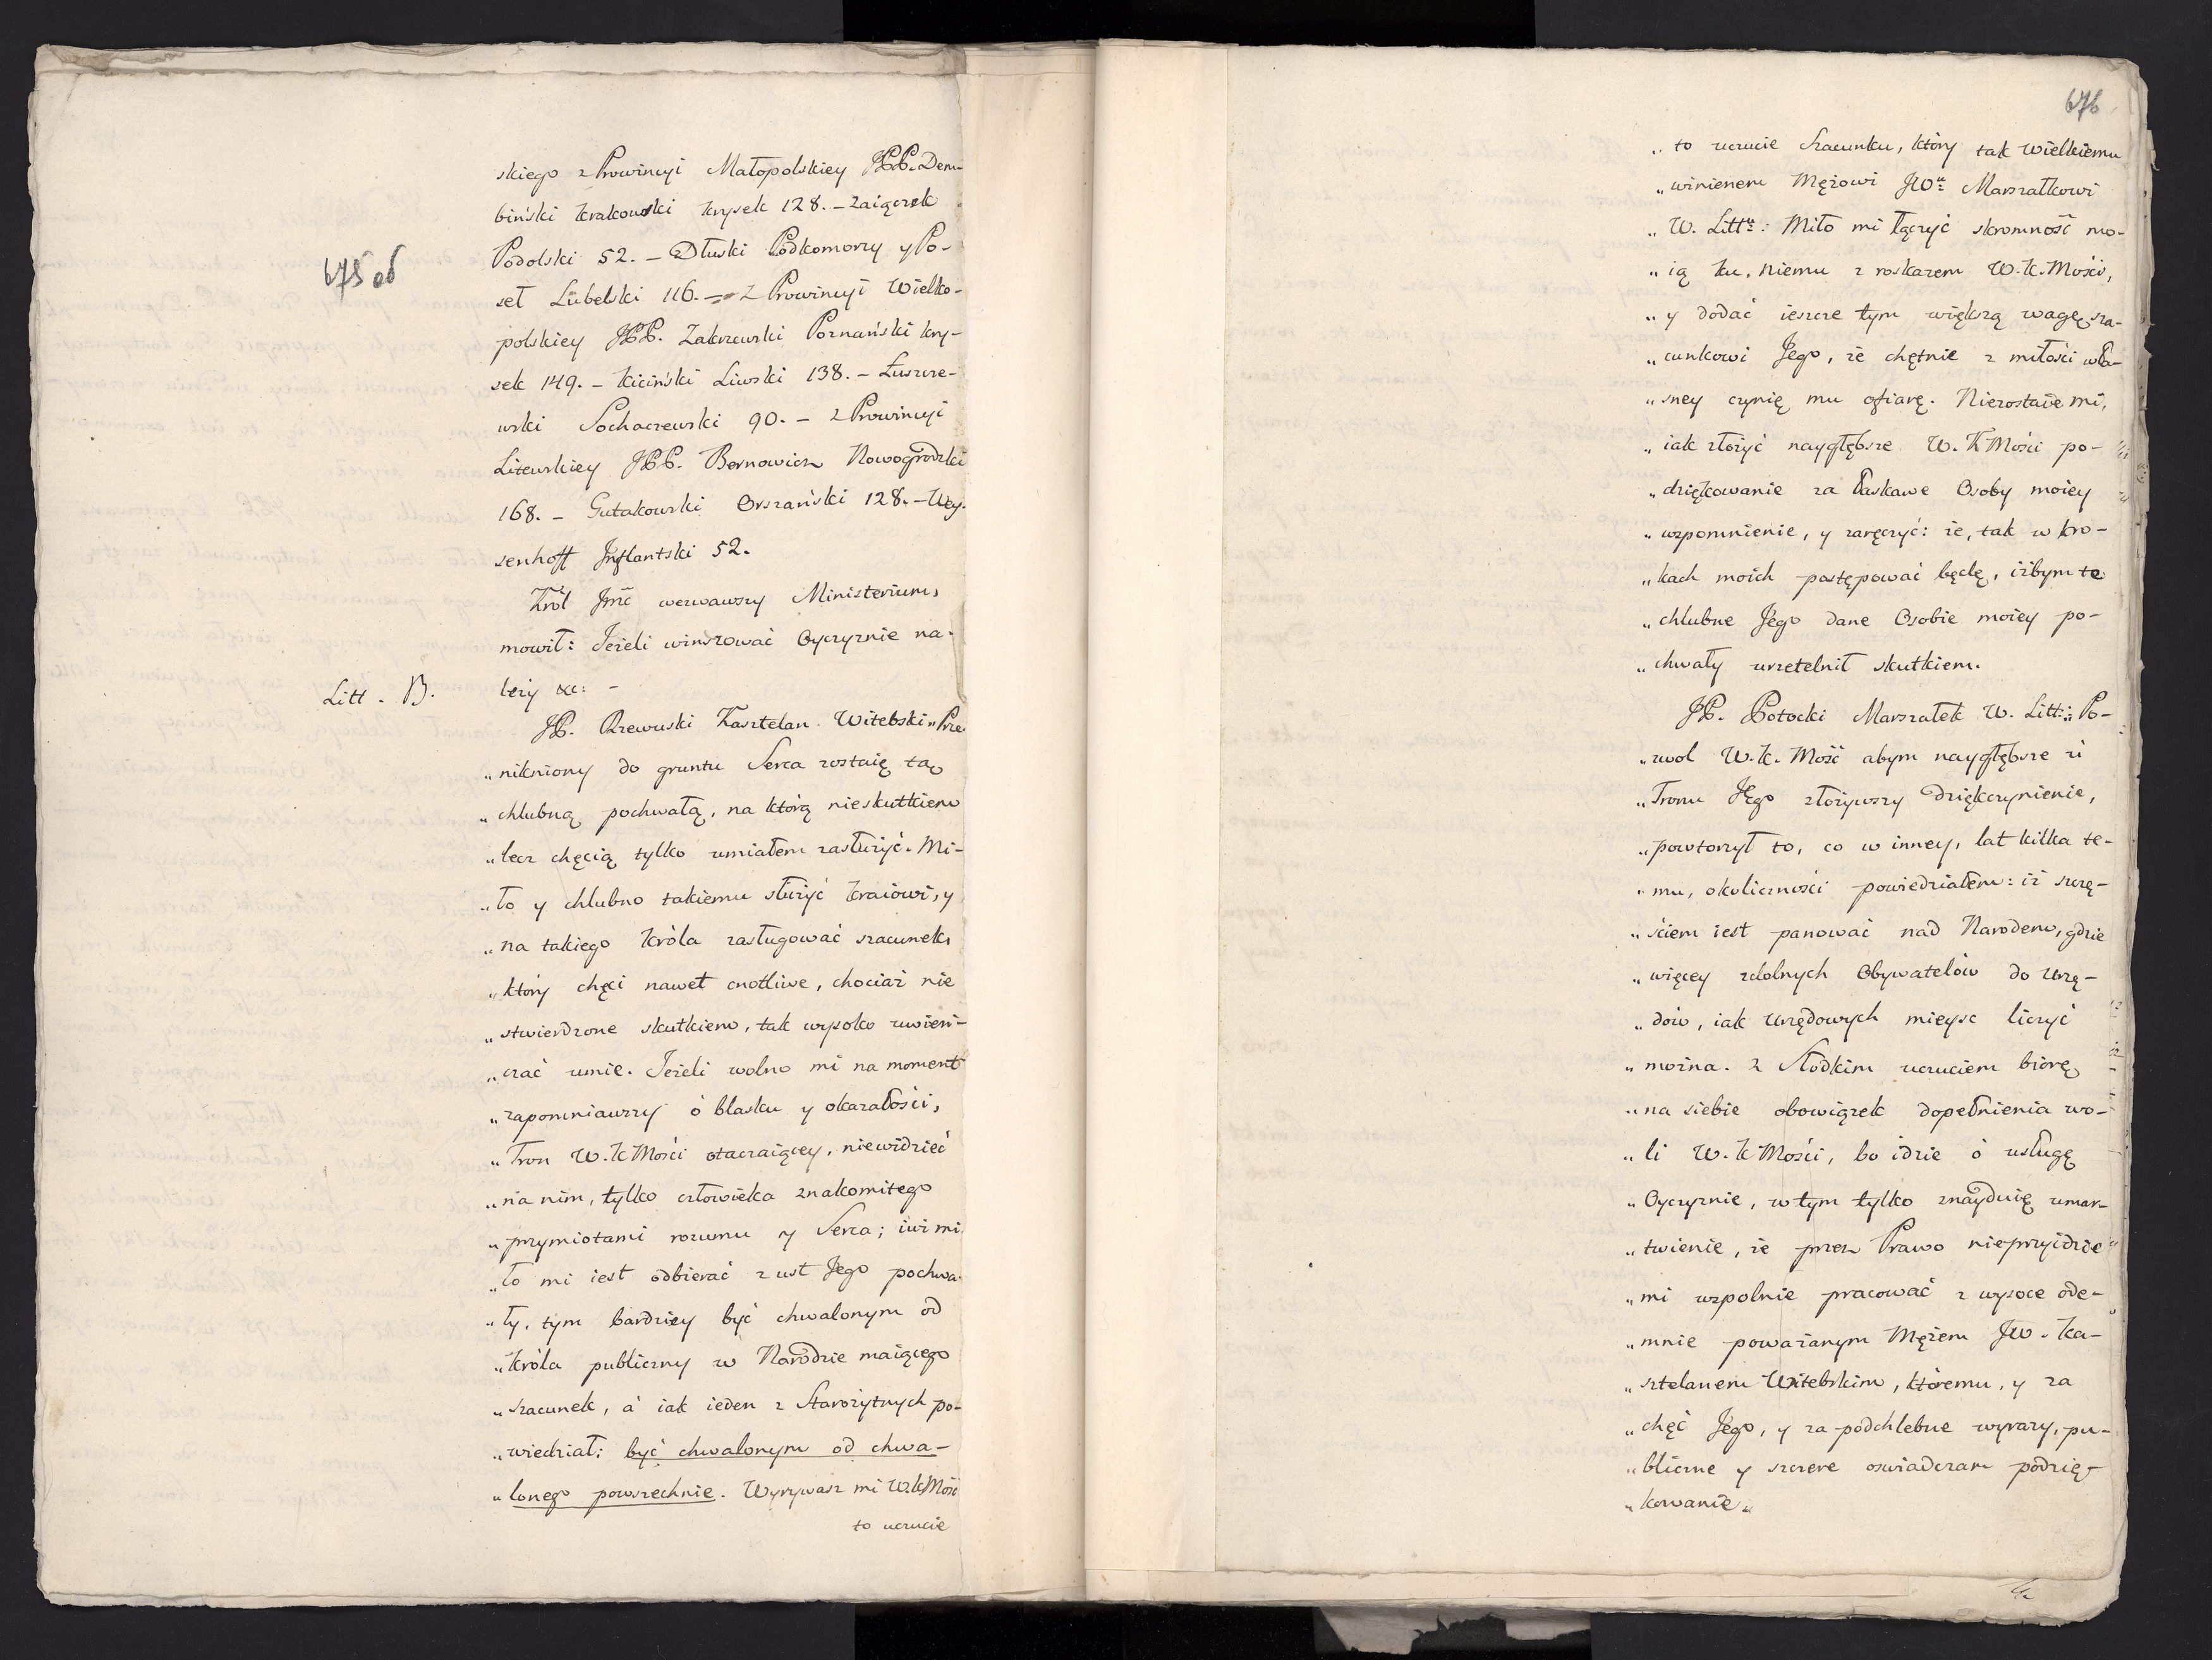 675 об
skiego z Prowincyi Małopolskiey JPP. Dem-
biński Krakowski Krysek 128. – Zaiączek
Podolski 52. – Dłuski Podkomorzy y Po-
seł Lubelski 116. – z Prowincyi Wielko-
polskiey JPP. Zakrzewski Poznański Kry-
sek 149. – Kiciński Liwski 138. – Łuszcze-
wski Sochaczewski 90. – z Prowincyi
Litewskiey JPP. Bernowicz Nowogrodzki
168. – Gutakowski Orszański 128. – Wey-
senhoff Inflantski 52.
Król Jmć wezwawszy Ministerium,
mowił: Jeżeli winszować Oyczyznie na-
Litt. B.
leży &c: –
JP. Rzewuski Kasztelan Witebski „Prze
„nikniony do gruntu Serca zostaię tą
„chlubną pochwałą, na którą nieskutkiem
„lecz chęcią tylko umiałem zasłużyć. Mi-
„ło y chlubno takiemu służyć Kraiowi, y
„na takiego Króla zasługować szacunek,
„który chęci nawet cnotliwe, chociaż nie
„stwierdzone skutkiem, tak wysoko uwień-
„czać umie. Jeżeli wolno mi na moment
„zapomniawszy ó blasku y okazałości,
„Tron W.K Mości otaczaiącey, niewidzieć
„na nim, tylko człowieka znakomitego
„przymiotami rozumu y Serca; iżi mi-
„ło mi iest odbierać z ust Jego pochwa-
„ły, tym bardziey być chwalonym od
„Króla publiczny w Narodzie maiącego
„szacunek, á iak ieden z Starożytnych po-
„wiedział: być chwalonym od chwa-
„lonego powszechnie. Wyrywasz mi W.K Mość
to uczucie
676
„to uczucie Szacunku, który tak Wielkiemu
„winienem Mężowi JWu. Marszałkowi
„W. Littu.: Miło mi łączyć skromność mo-
„ią ku niemu z roskazem W.K. Mości,
„y dodać ieszcze tym większą wagę sza-
„cunkowi Jego, że chętnie z miłości wła-
„sney czynię mu ofiarę. Niezostaie mi,
„iak złożyć naygłębsze W. K Mości po-
„dziękowanie za Łaskawe Osoby moiey
„wzpomnienie, y zaręczyć: że, tak w kro-
„kach moich postępować będę, iżbym te
„chlubne Jego dane Osobie moiey po-
„chwały urzetelnił skutkiem.
JP. Potocki Marszałek W. Litt: „Po-
„zwol W.K. Mość abym naygłębsze ú
„Tronu Jego złożywszy dziękczynienie,
„powtorzył to, co w inney, lat kilka te-
„mu, okoliczności powiedziałem: iż szczę-
„ściem iest panować nad Narodem, gdzie
„więcey zdolnych Obywatelów do Urzę-
„dów, iak Urzędowych mieysc liczyć
„można. Z Słodkim uczuciem biorę
„na siebie obowiązek dopełnienia wo-
„li W. K Mości, bo idzie ó usługę
„Oyczyznie, w tym tylko znayduię umar-
„twienie, że przez Prawo nieprzyidzie
„mi wzpolnie pracować z wysoce ode-
„mnie poważanym Mężem JW. Ka-
„sztelanem Witebskim, któremu, y za
„chęć Jego, y za podchlebne wyrazy, pu-
„bliczne y szczere oswiadczam podzię-
„kowanie„